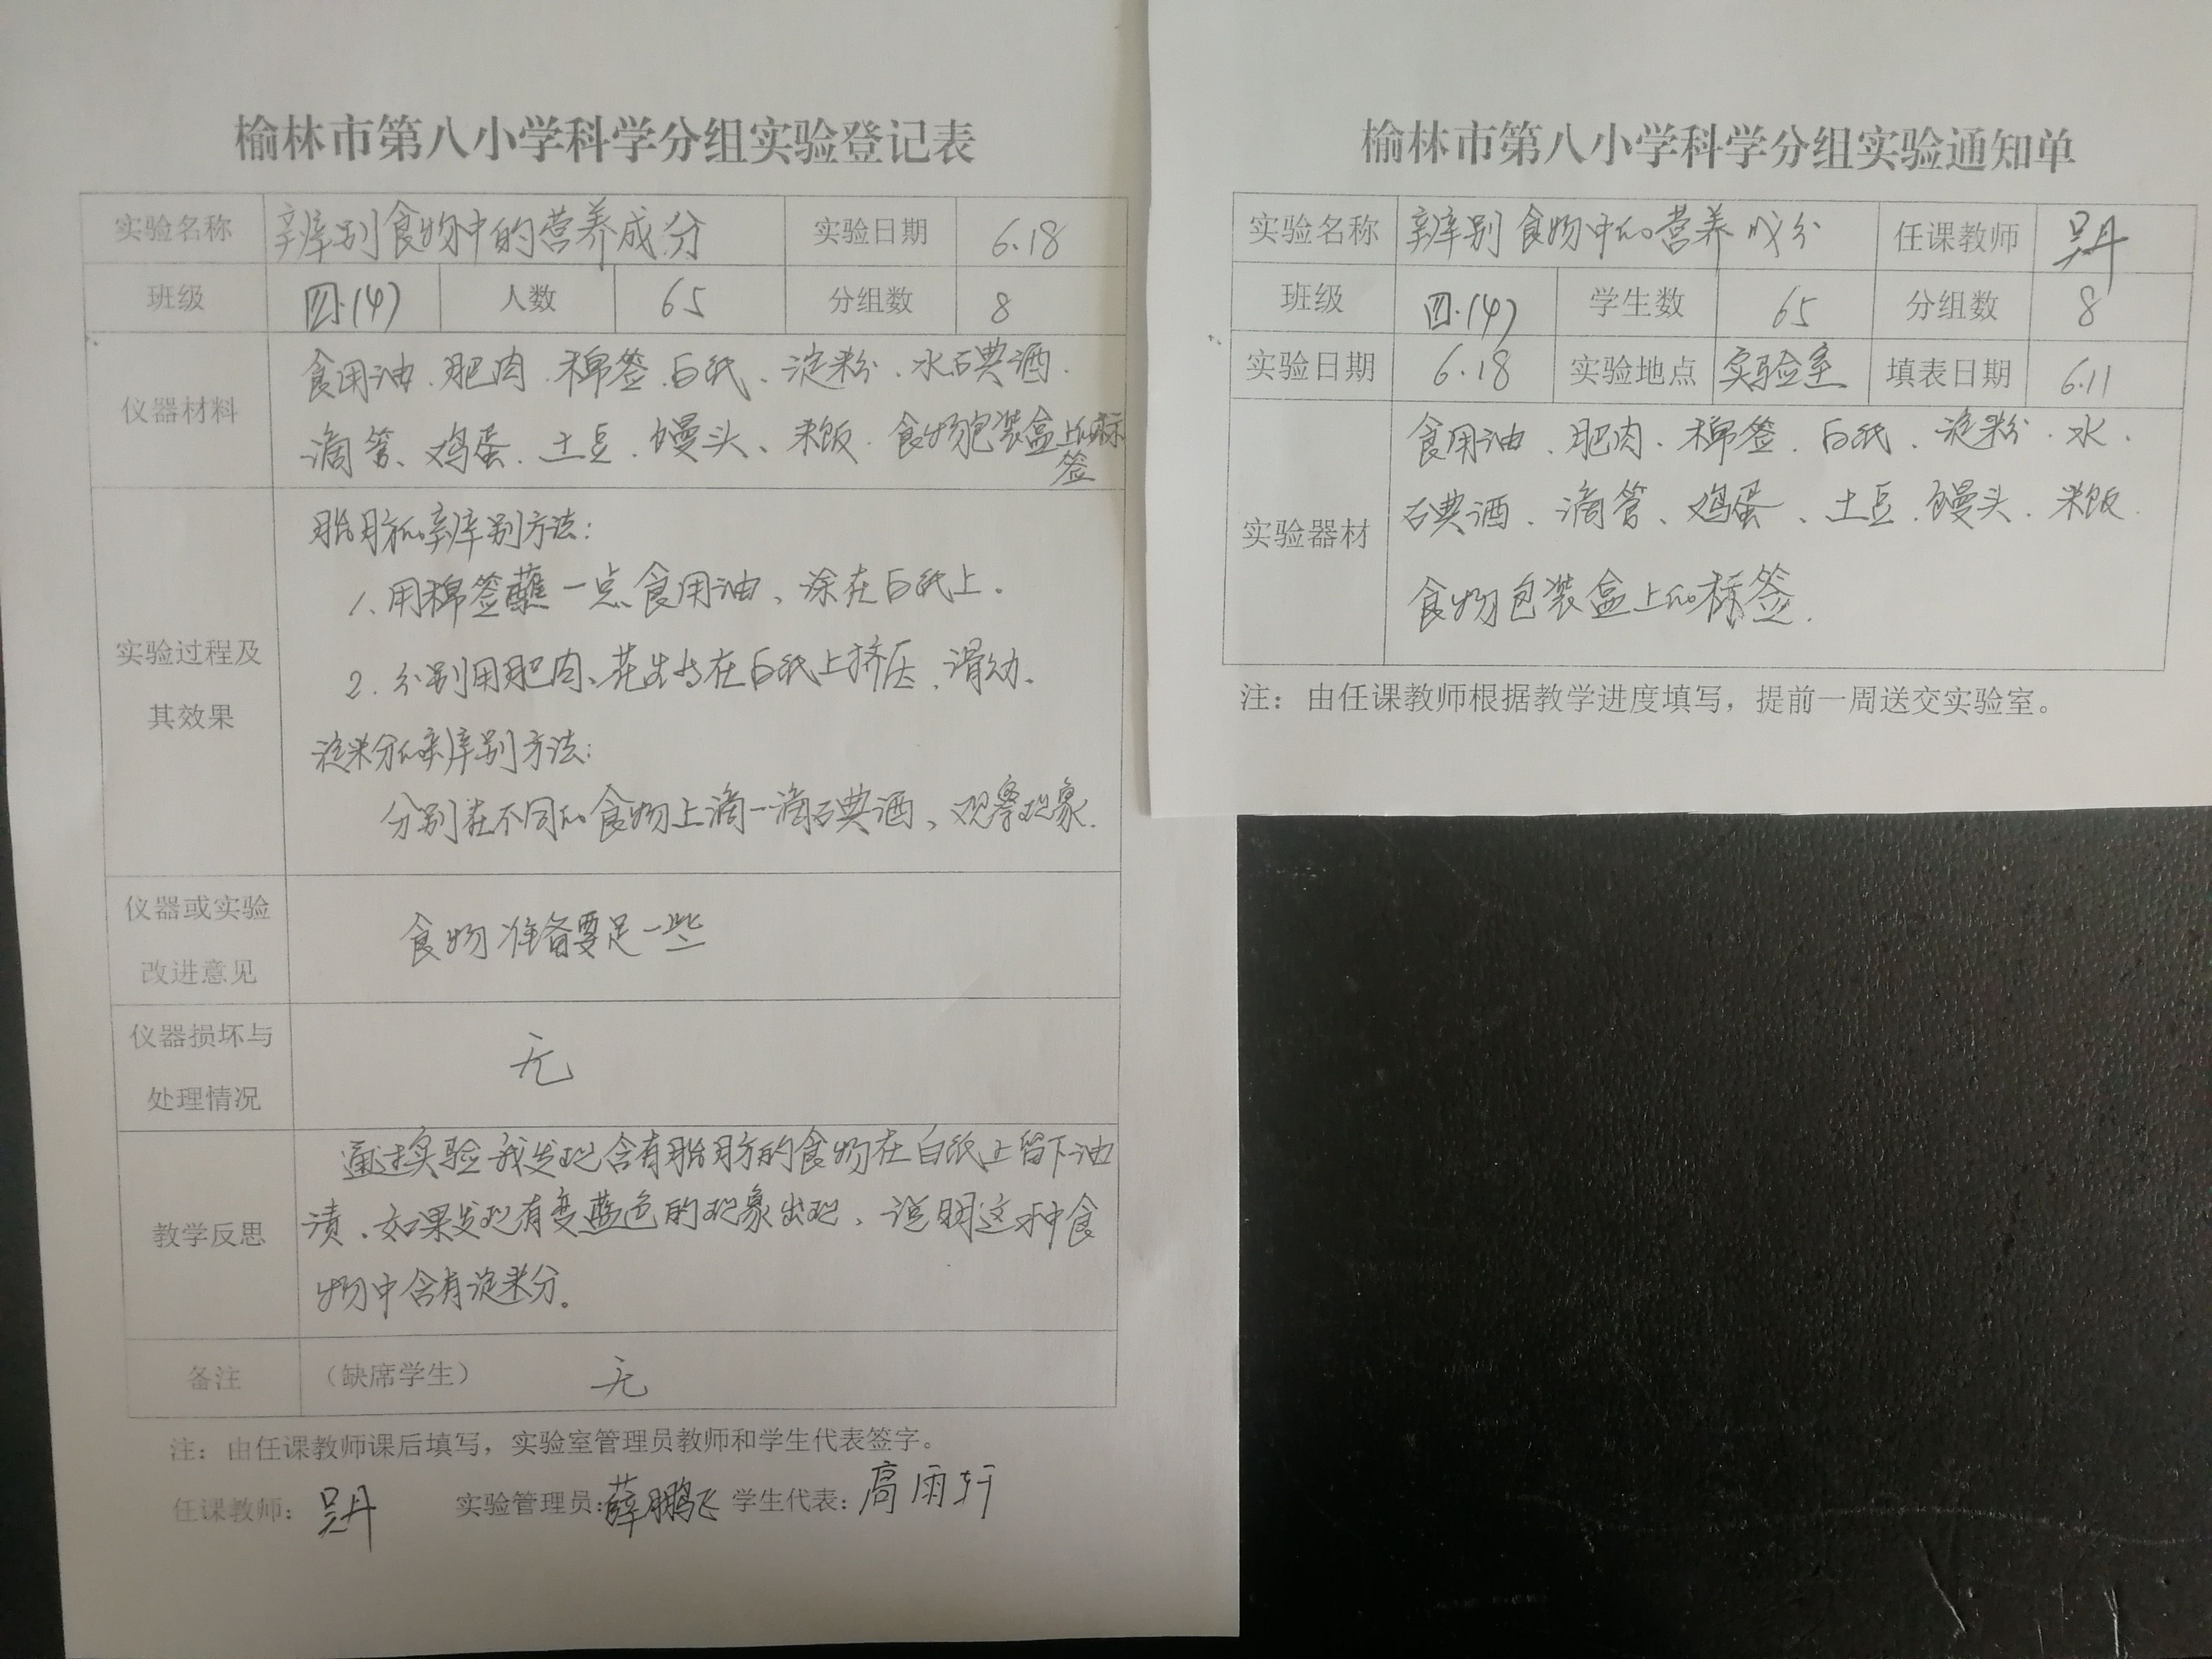 榆林市第八小学科学分组实验登记表
实验名称 辨别食物中的营养成分 实验日期 6.18
班级 四.(4) 人数 65 分组数 8
仪器材料
食用油、肥肉、棉签、白纸、淀粉、水、碘酒、
滴管、鸡蛋、土豆、馒头、米饭、食物包装盒上的标
签
实验过程及
其效果
脂肪的辨别方法：
1、用棉签蘸一点食用油、涂在白纸上。
2. 分别用肥肉、花生等在白纸上挤压、滑动、
淀粉的辨别方法：
分别在不同的食物上滴一滴碘酒、观察现象.
仪器或实验
改进意见
食物准备要足一些
仪器损坏与
处理情况
无
教学反思
通过实验我发现含有脂肪的食物在白纸上留下油
渍、如果发现有变蓝色的现象出现、说明这种食
物中含有淀粉。
备注 （缺席学生） 无
注：由任课教师课后填写，实验室管理员教师和学生代表签字。
任课教师：吴丹 实验管理员：薛鹏飞 学生代表：高雨轩
榆林市第八小学科学分组实验通知单
实验名称 辨别食物中的营养成分 任课教师 吴丹
班级 四.(4) 学生数 65 分组数 8
实验日期 6.18 实验地点 实验室 填表日期 6.11
实验器材
食用油、肥肉、棉签、白纸、淀粉、水、
碘酒、滴管、鸡蛋、土豆、馒头、米饭
食物包装盒上的标签.
注：由任课教师根据教学进度填写，提前一周送交实验室。